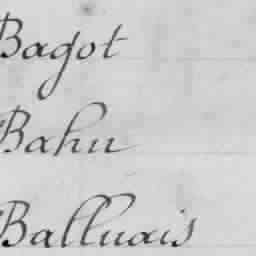 Bagot
Bahu
Balluais